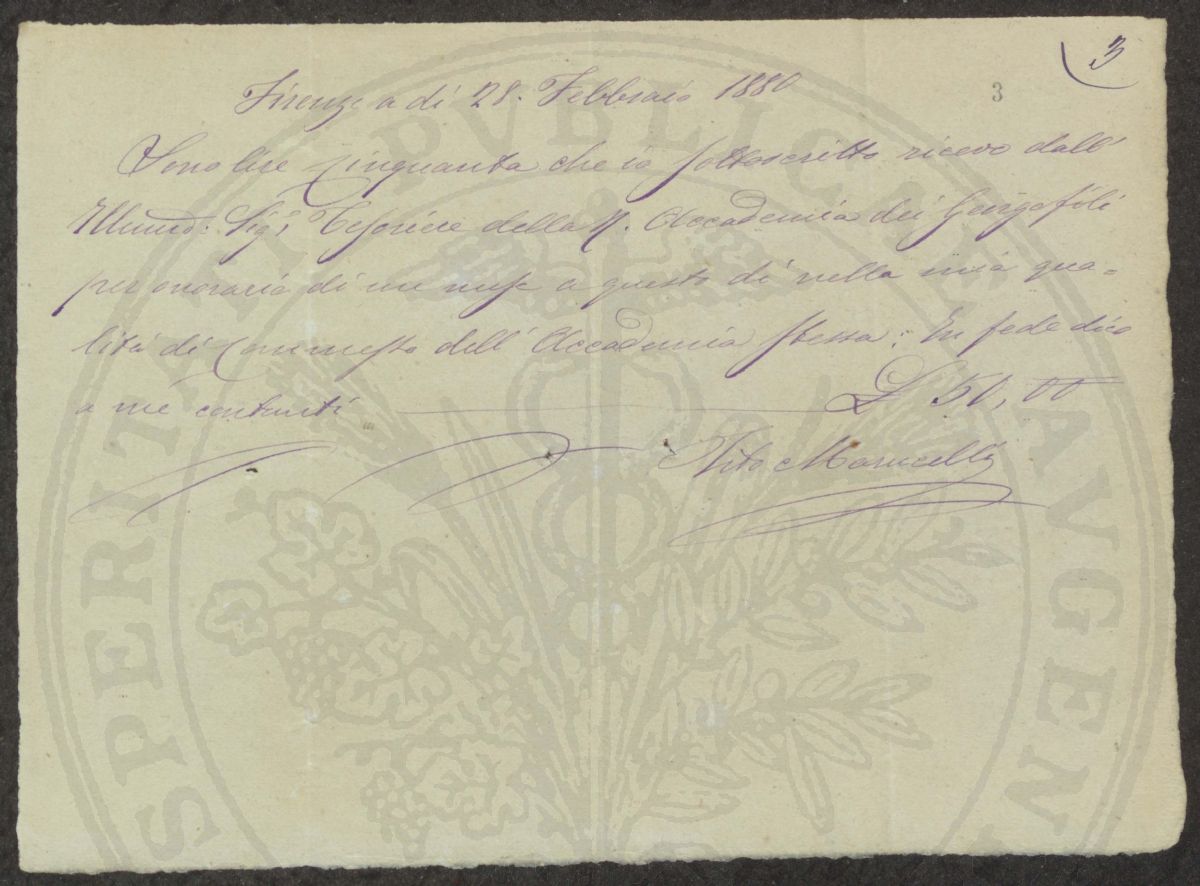 3
3
Firenze a dì 28. Febbraio 1880
Sono lire Cinquanta che io sottoscritto ricevo dall'
Illmo: Sig; Tesoriere della R. Accademia dei Georgofili
per onorario di un mese a questo dì nella mia qua=
lità di Commesso dell' Accademia stessa; In fede dico
a me contanti L 50,00
Vito
PROSPERITATI PVBLICAE AVGENDAE